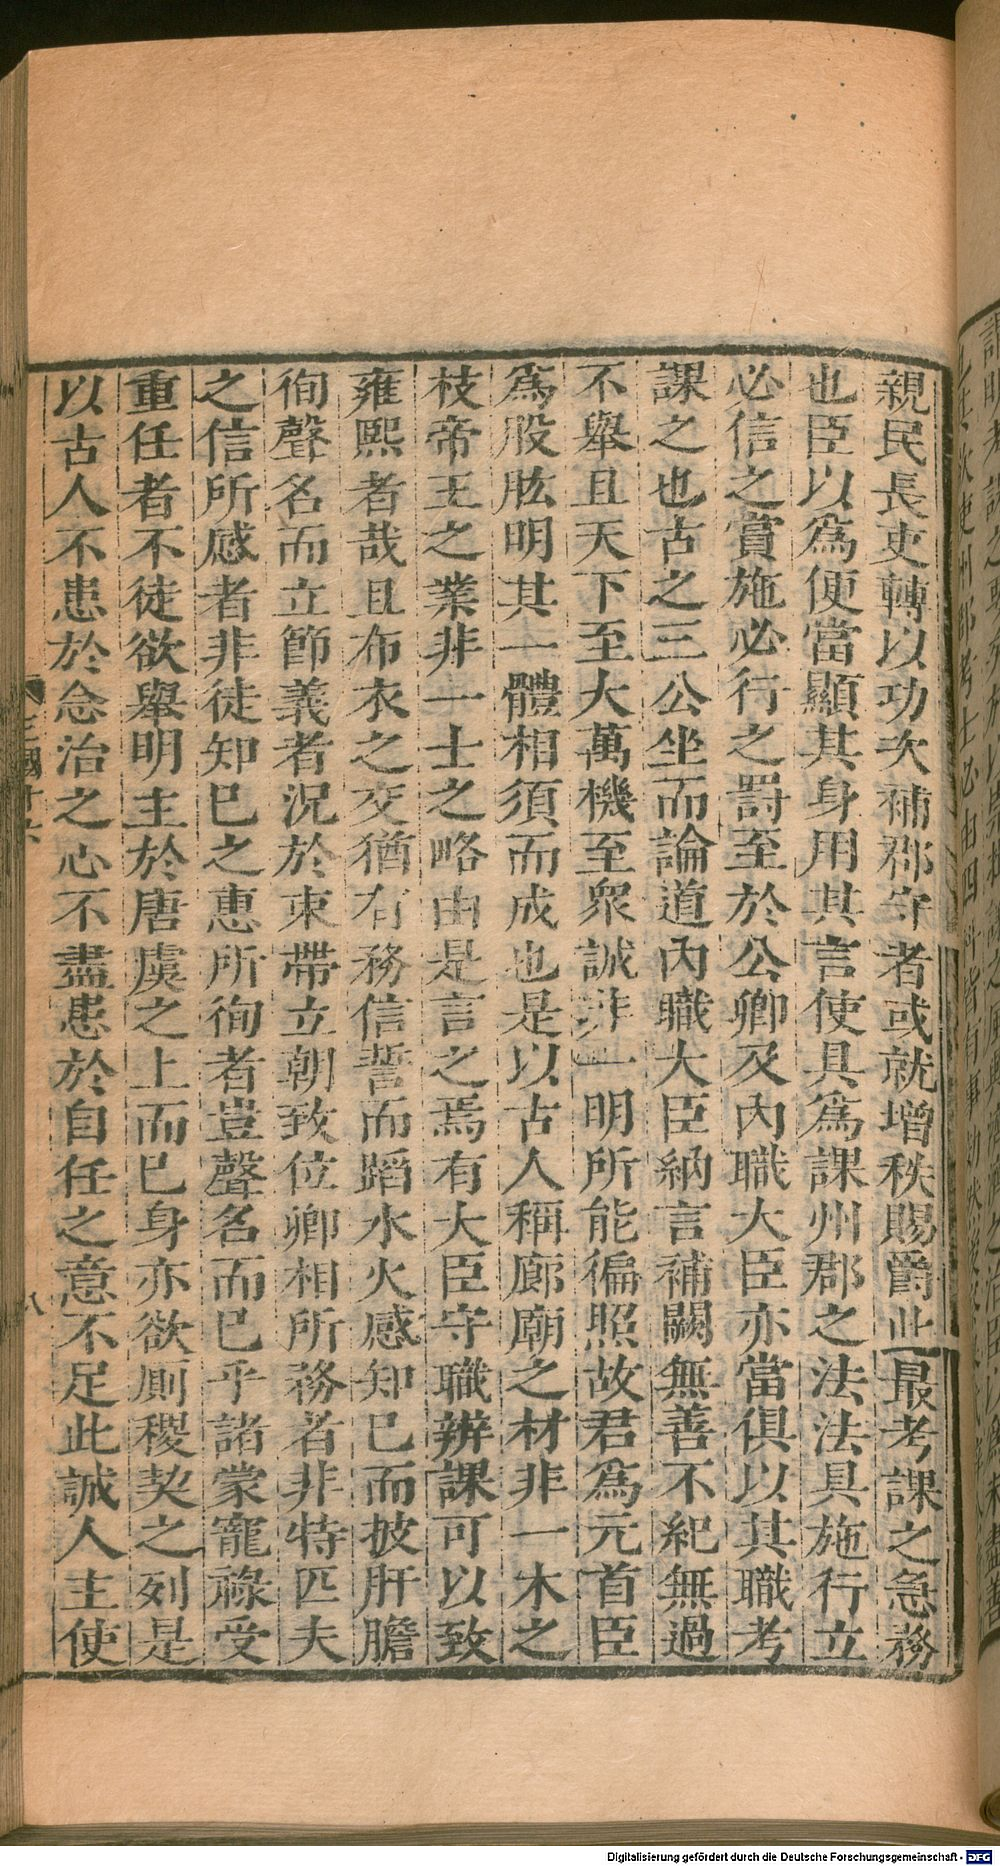 親民長吏轉以功次補郡守者或就增秩賜爵此最考課之急務
也臣以為便當顯其身用其言使具為課州郡之法法具施行立
必信之賞施必行之罰至於公卿及內職大臣亦當俱以其職考
課之也古之三公坐而論道內職大臣納言補闕無善不紀無過
不舉且天下至大萬機至衆誠非一明所能徧照故君為元首臣
為股肱明其一體相須而成也是以古人稱廊廟之材非一木之
枝帝王之業非一士之略由是言之焉有大臣守職辨課可以致
雍熙者哉且布衣之交猶有務信誓而蹈水火感知已而披肝膽
徇聲名而立節義者況於束帶立朝致位卿相所務者非特匹夫
之信所感者非徒知已之惠所徇者豈聲名而已乎諸蒙寵祿受
重任者不徒欲舉明主於唐虞之上而已身亦欲厠稷契之列是
以古人不患於念治之心不盡患於自任之意不足此誠人主使
三國十六
八
Digitalisierung gefördert durch die Deutsche Forschungsgemeinschaft - DFG